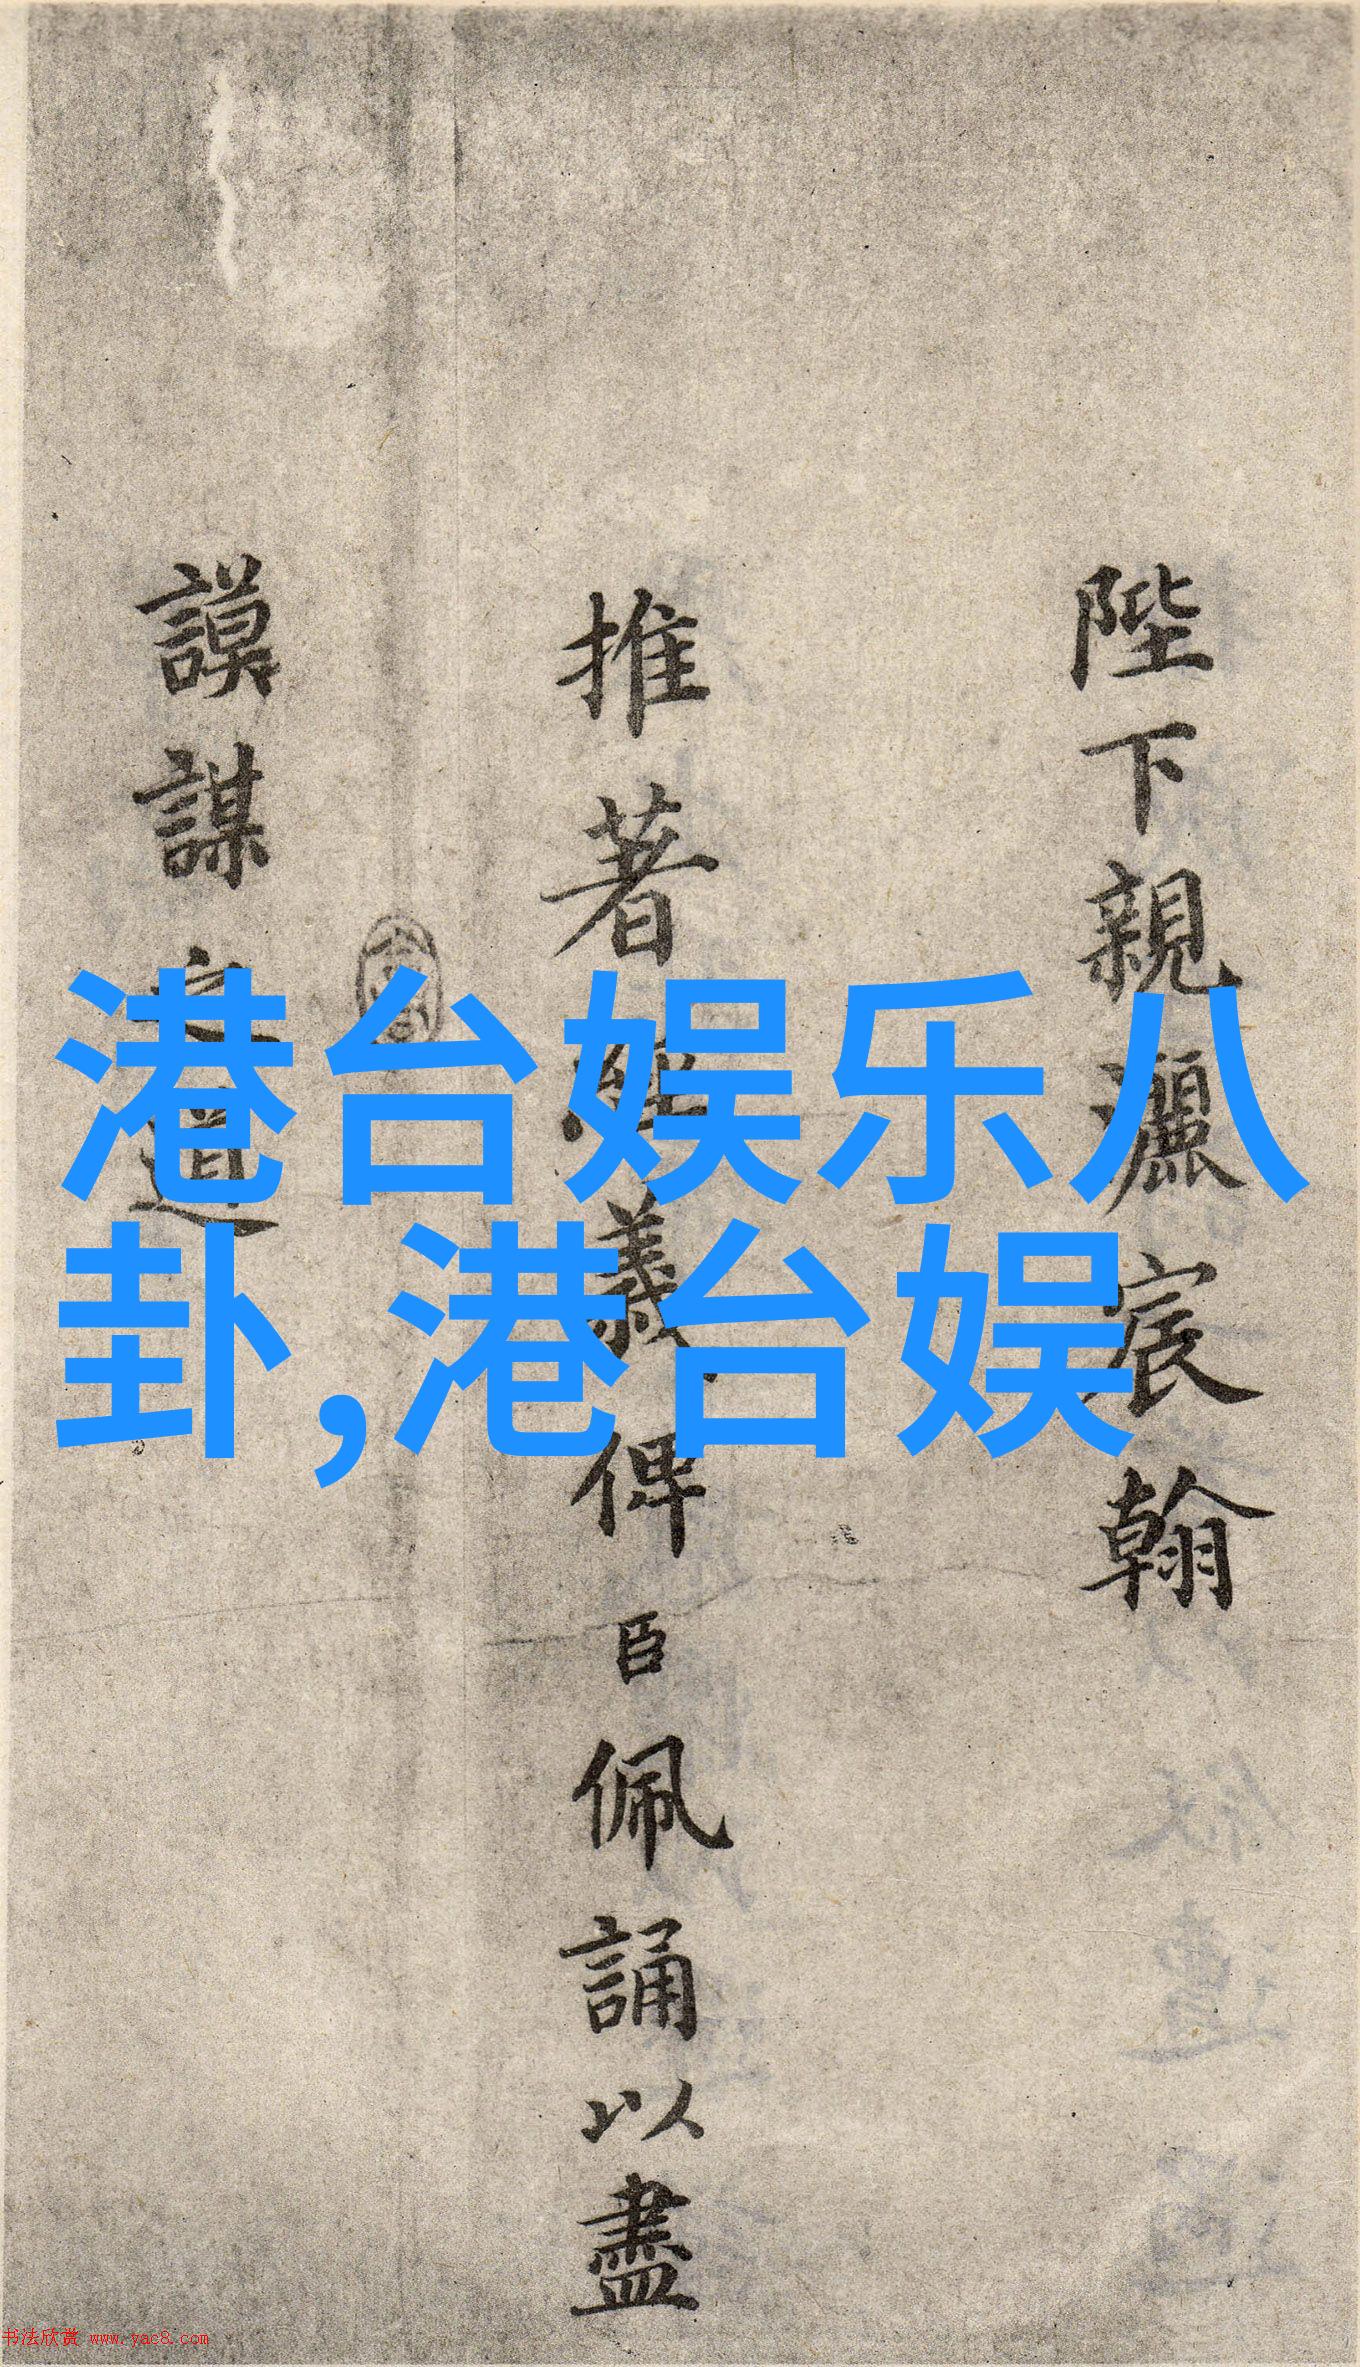 陛下親灑宸翰
推著經義俾臣佩誦以盡
謨謀之道
港台娱乐八
卦,港台娱
书法欣赏 www.yac8.com